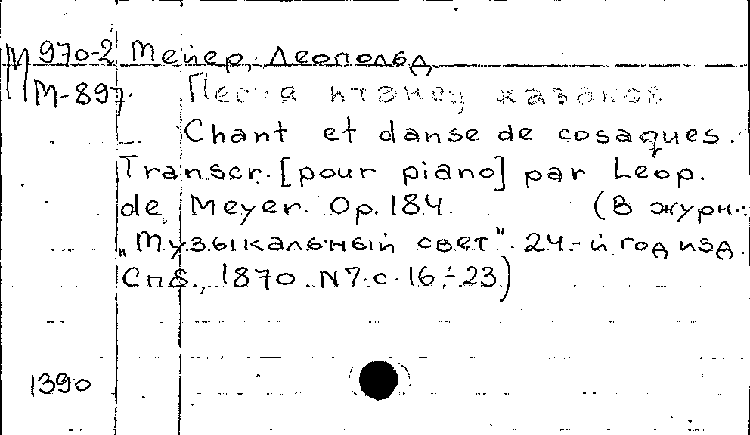 М 970-2 Мейер, Леопольд
М-897. Песня и танец казаков
Chant et danse de cosaques.
Transcr. [pour piano] par Leop.
de Meyer. Op. 184. (В журн.:
„Музыкальный свет". 24-й год изд.
Спб., 1870. N7. с. 16÷23)
1390